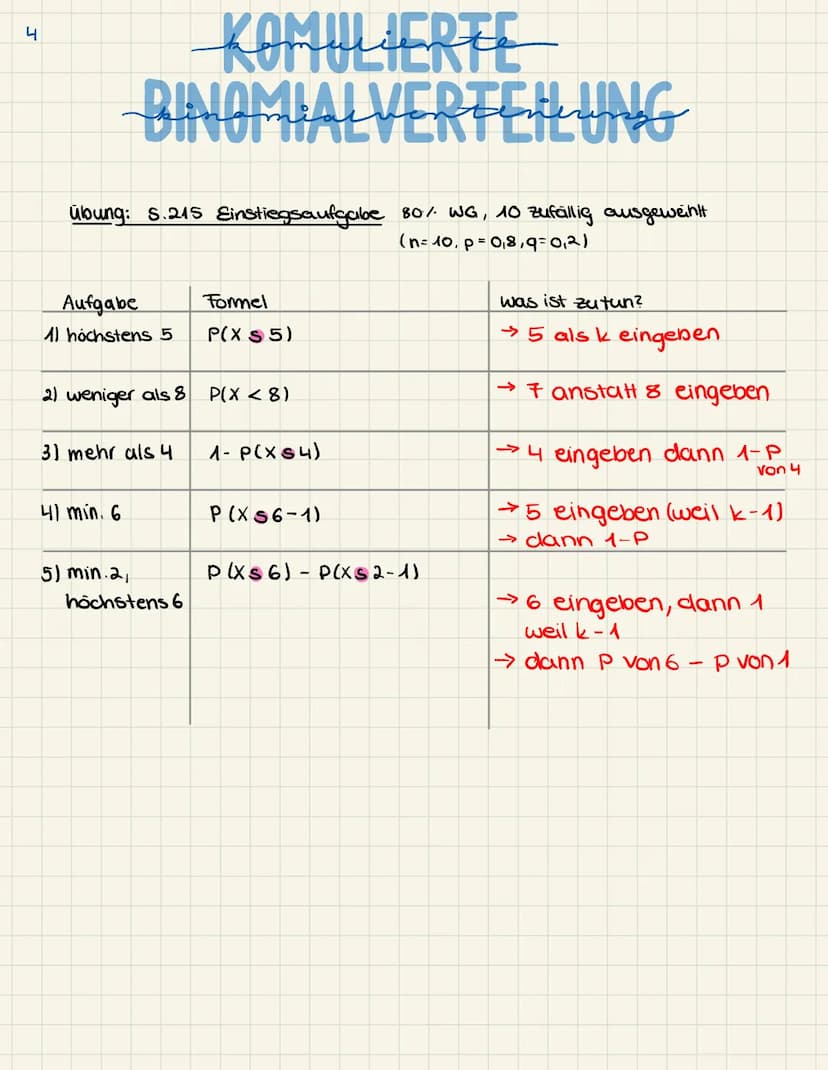 4
KOMULIERTE
komulierte
BINOMIALVERTEILUNG
binomialverteilung
Übung: S.215 Einstiegsaufgabe 80% WG, 10 zufällig ausgewählt
(n=10, p=0,8, q=0,2)
Aufgabe Formel Was ist zu tun?
1) höchstens 5 P(X ≤ 5) → 5 als k eingeben
2) weniger als 8 P(X < 8) → 7 anstatt 8 eingeben
3) mehr als 4 1- P(X≤4) → 4 eingeben dann 1-P
von 4
4) min. 6 P(X≤6-1) → 5 eingeben (weil k-1)
→ dann 1-P
5) min.2, P(X≤6) - P(X≤2-1)
höchstens 6 → 6 eingeben, dann 1
weil k-1
→ dann P von 6 - P von 1